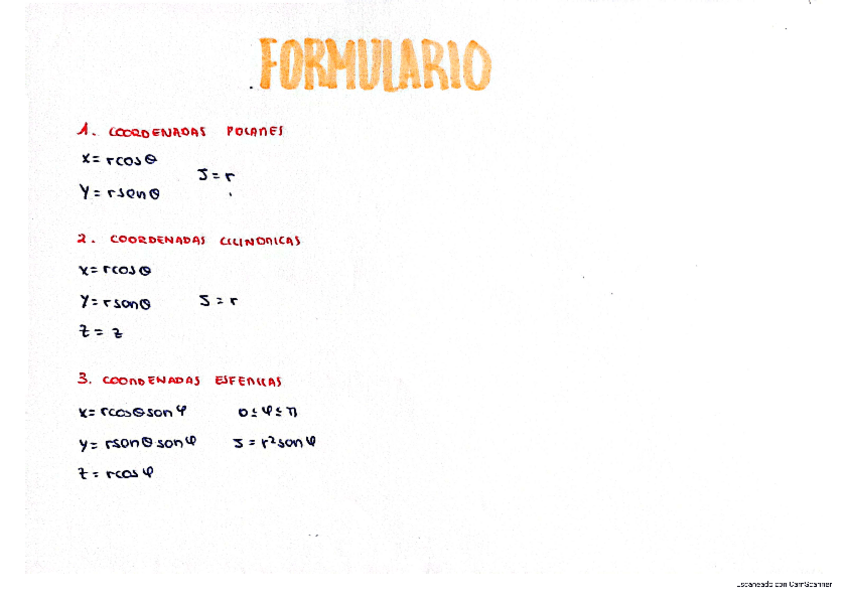 FORMULARIO
1. COORDENADAS POLARES
x = rcosθ
J = r
y = rsenθ
2. COORDENADAS CILINDRICAS
x = rcosθ
y = rsenθ J = r
z = z
3. COORDENADAS ESFERICAS
x = rcosθsenφ 0 ≤ φ ≤ π
y = rsenθsenφ J = r²senφ
z = rcosφ
Escaneado con CamScanner